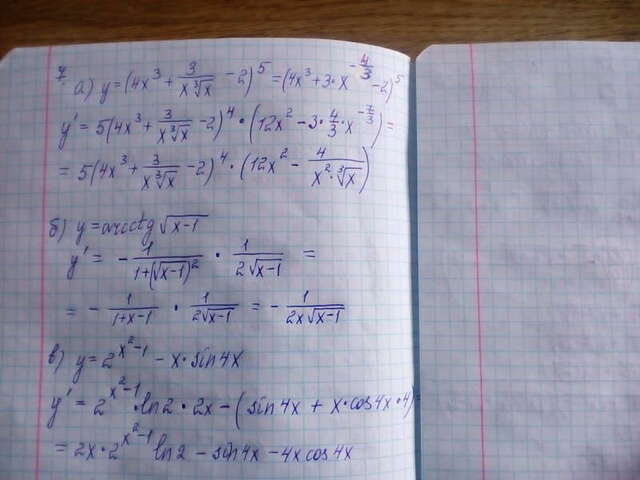 7.
а) y=(4x³ + 3/(x∛x) - 2)⁵ = (4x³ + 3·x^(-4/3) - 2)⁵
y' = 5(4x³ + 3/(x∛x) - 2)⁴ · (12x² - 3·4/3·x^(-7/3)) =
= 5(4x³ + 3/(x∛x) - 2)⁴ · (12x² - 4/(x²·∛x))
б) y = arcctg√(x-1)
y' = - 1/(1+(√(x-1))²) · 1/(2√(x-1)) =
= - 1/(1+x-1) · 1/(2√(x-1)) = - 1/(2x√(x-1))
в) y = 2^(x²-1) - x·sin4x
y' = 2^(x²-1)·ln2·2x - (sin4x + x·cos4x·4) =
= 2x·2^(x²-1) ln2 - sin4x - 4x cos4x